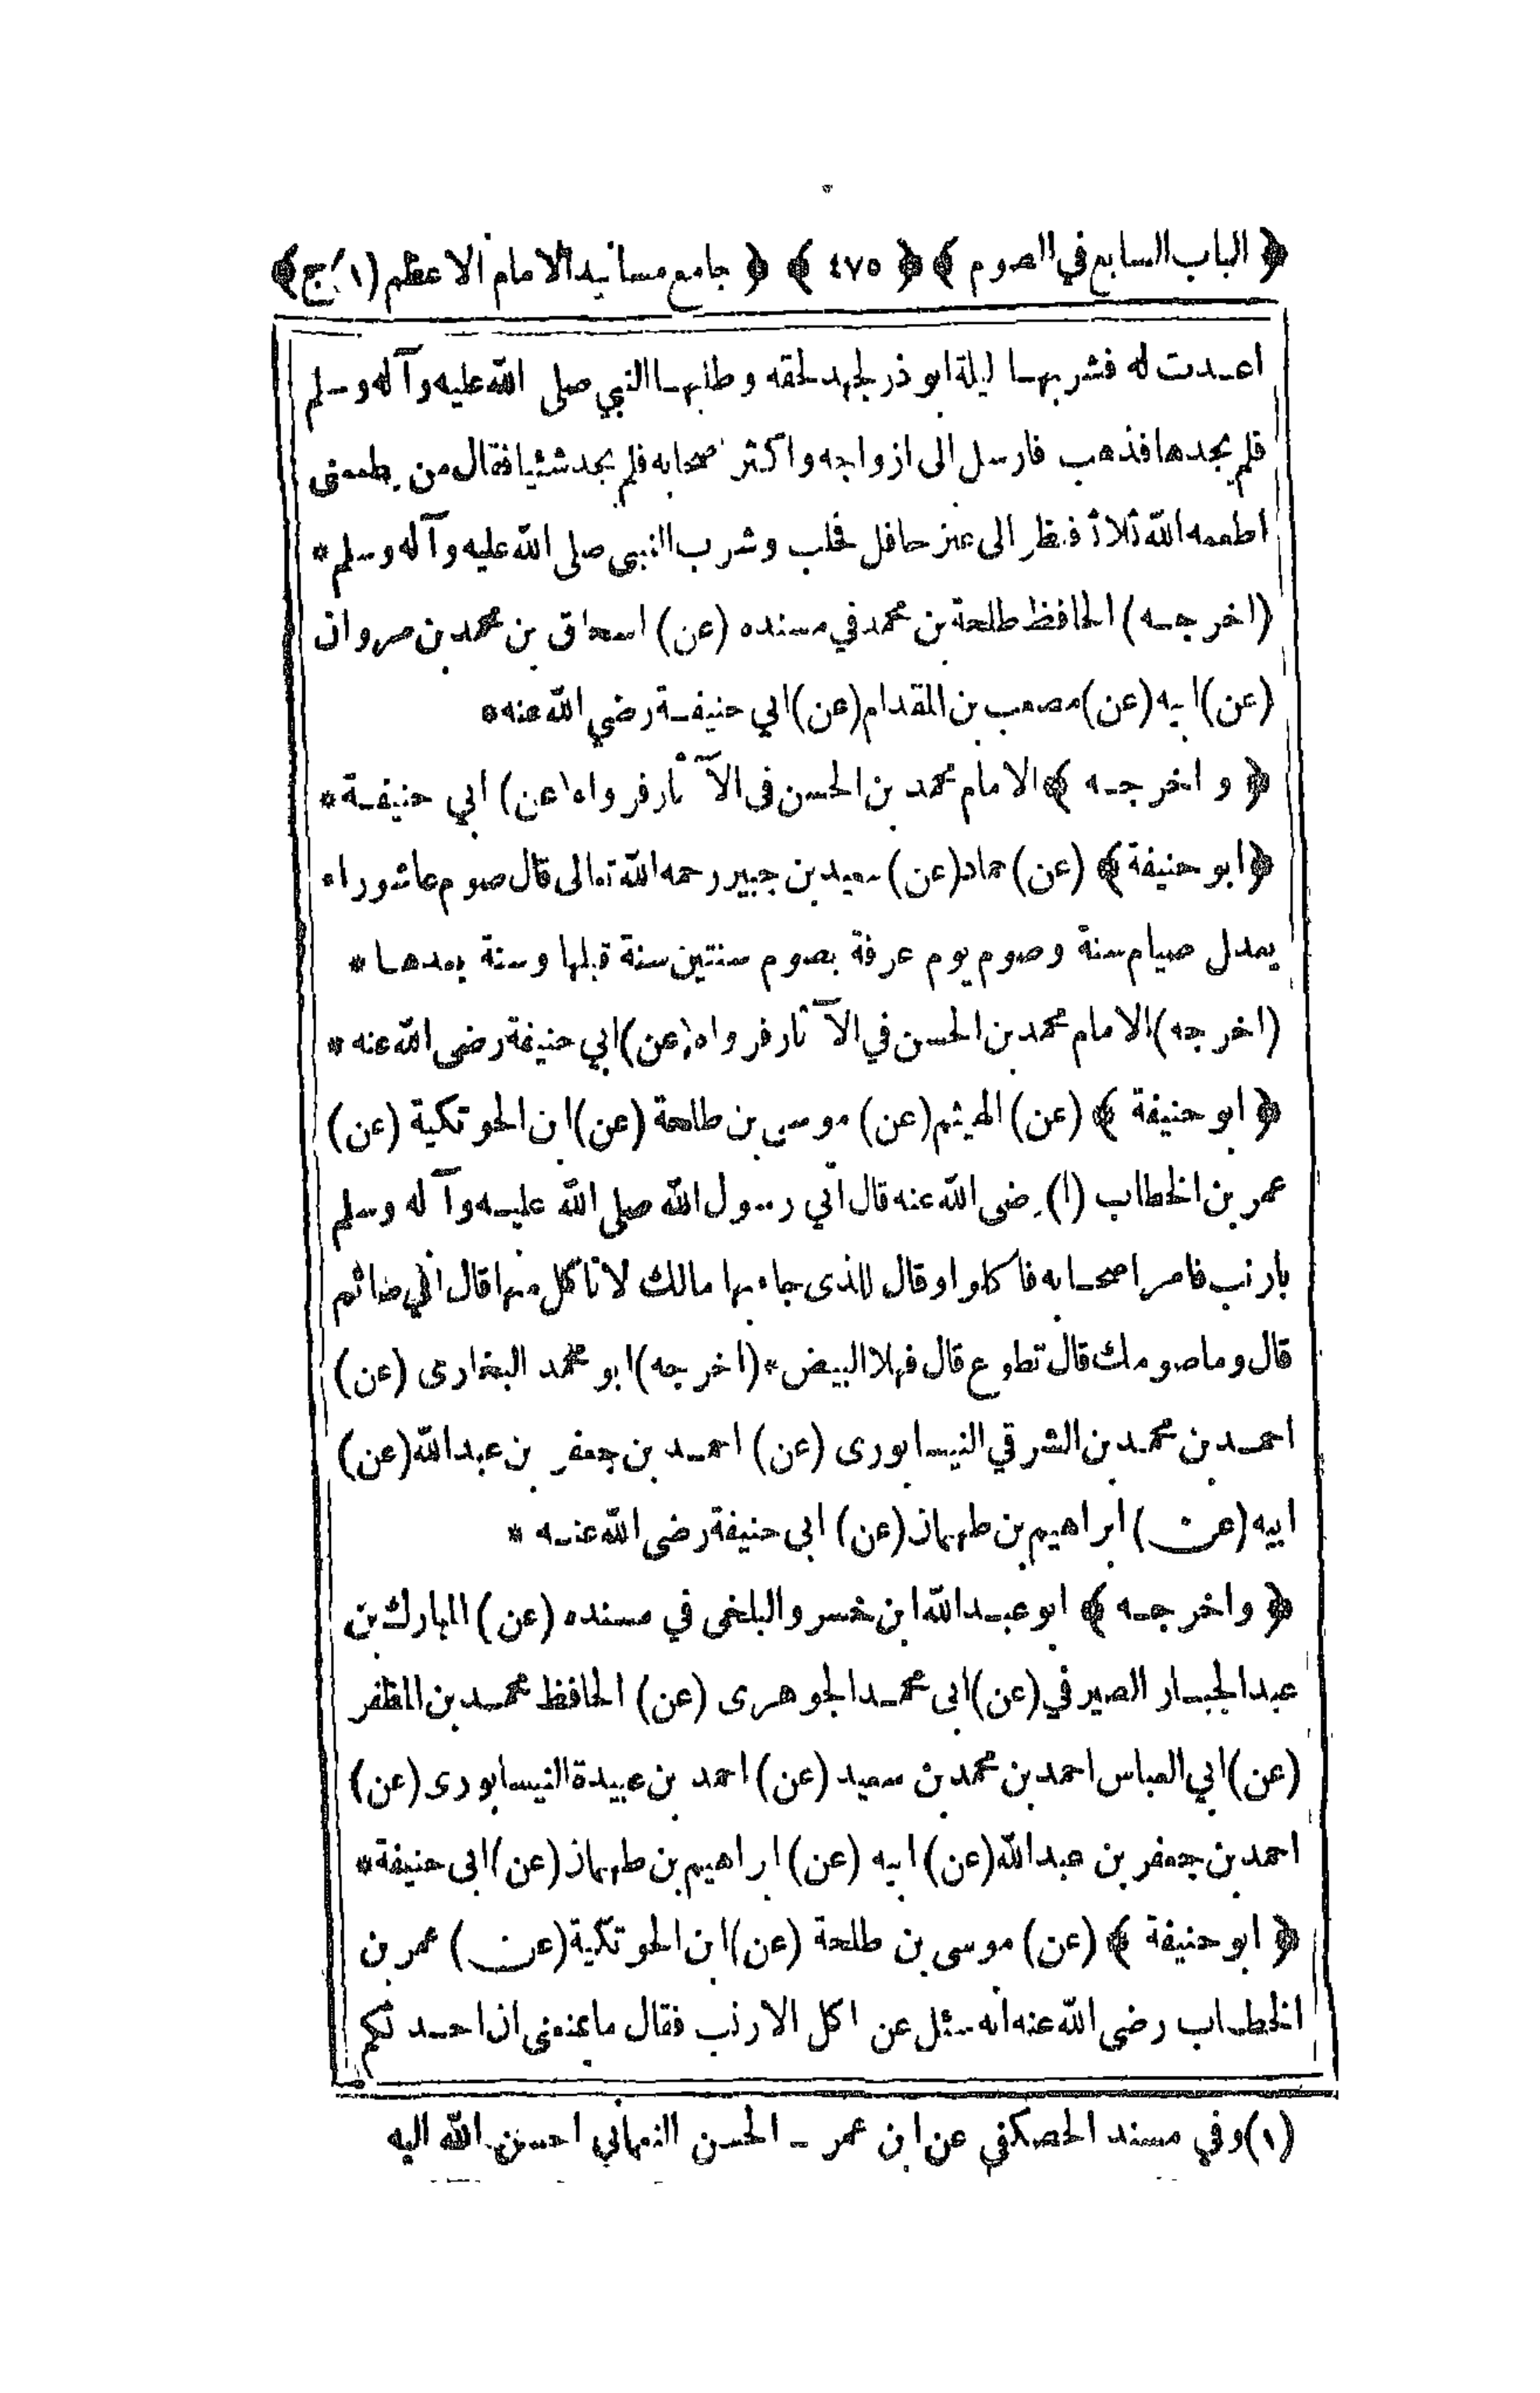 ﴿ الباب السابع في الصوم ﴾ ﴿ ٤٧٥ ﴾ ﴿ جامع مسانيد الامام الاعظم (١ ج) ﴾
اعدت له فشربها ليلة ابو ذر لجهد لحقه وطلبها النبي صلى الله عليه وآله وسلم
فلم يجدها فذهب فارسل الى ازواجه واكثر صحابه فلم يجد شيئا فقال من يطعمنى
اطعمه الله ثلاثا فنظر الى عنز حافل فحلب وشرب النبي صلى الله عليه وآله وسلم *
(اخرجه) الحافظ طلحة بن محمد في مسنده (عن) اسحاق بن محمد بن مروان
(عن) ابيه (عن) مصعب بن المقدام (عن) ابي حنيفة رضي الله عنه *
﴿ و اخرجه ﴾ الامام محمد بن الحسن فى الآثار فرواه (عن) ابي حنيفة *
﴿ ابو حنيفة ﴾ (عن) حماد (عن) سعيد بن جبير رحمه الله تعالى قال صوم عاشوراء
يعدل صيام سنة وصوم يوم عرفة بصوم سنتين سنة قبلها وسنة بعدها *
(اخرجه) الامام محمد بن الحسن في الآثار فرواه (عن) ابي حنيفة رضى الله عنه *
﴿ ابو حنيفة ﴾ (عن) الهيثم (عن) موسى بن طلحة (عن) ابن الحوتكية (عن)
عمر بن الخطاب (١) رضى الله عنه قال اتي رسول الله صلى الله عليه وآله وسلم
بارنب فامر اصحابه فاكلوا وقال للذى جاء بها مالك لا تاكل منها قال اني صائم
قال وما صومك قال تطوع قال فهلا البيض * (اخرجه) ابو محمد البخارى (عن)
احمد بن محمد بن الشرقي النيسابورى (عن) احمد بن جعفر بن عبد الله (عن)
ابيه (عن) ابراهيم بن طهمان (عن) ابى حنيفة رضى الله عنه *
﴿ واخرجه ﴾ ابو عبد الله ابن خسرو البلخى في مسنده (عن) المبارك بن
عبد الجبار الصيرفي (عن) ابى محمد الجوهرى (عن) الحافظ محمد بن المظفر
(عن) ابي العباس احمد بن محمد بن سعيد (عن) احمد بن عبيدة النيسابورى (عن)
احمد بن جعفر بن عبد الله (عن) ابيه (عن) ابراهيم بن طهمان (عن) ابى حنيفة *
﴿ ابو حنيفة ﴾ (عن) موسى بن طلحة (عن) ابن الحوتكية (عن) عمر بن
الخطاب رضى الله عنه انه سئل عن اكل الارنب فقال ما يمنعنى ان احدثكم
(١) وفي مسند الحصكفي عن ابن عمر - الحسن النعماني احسن الله اليه